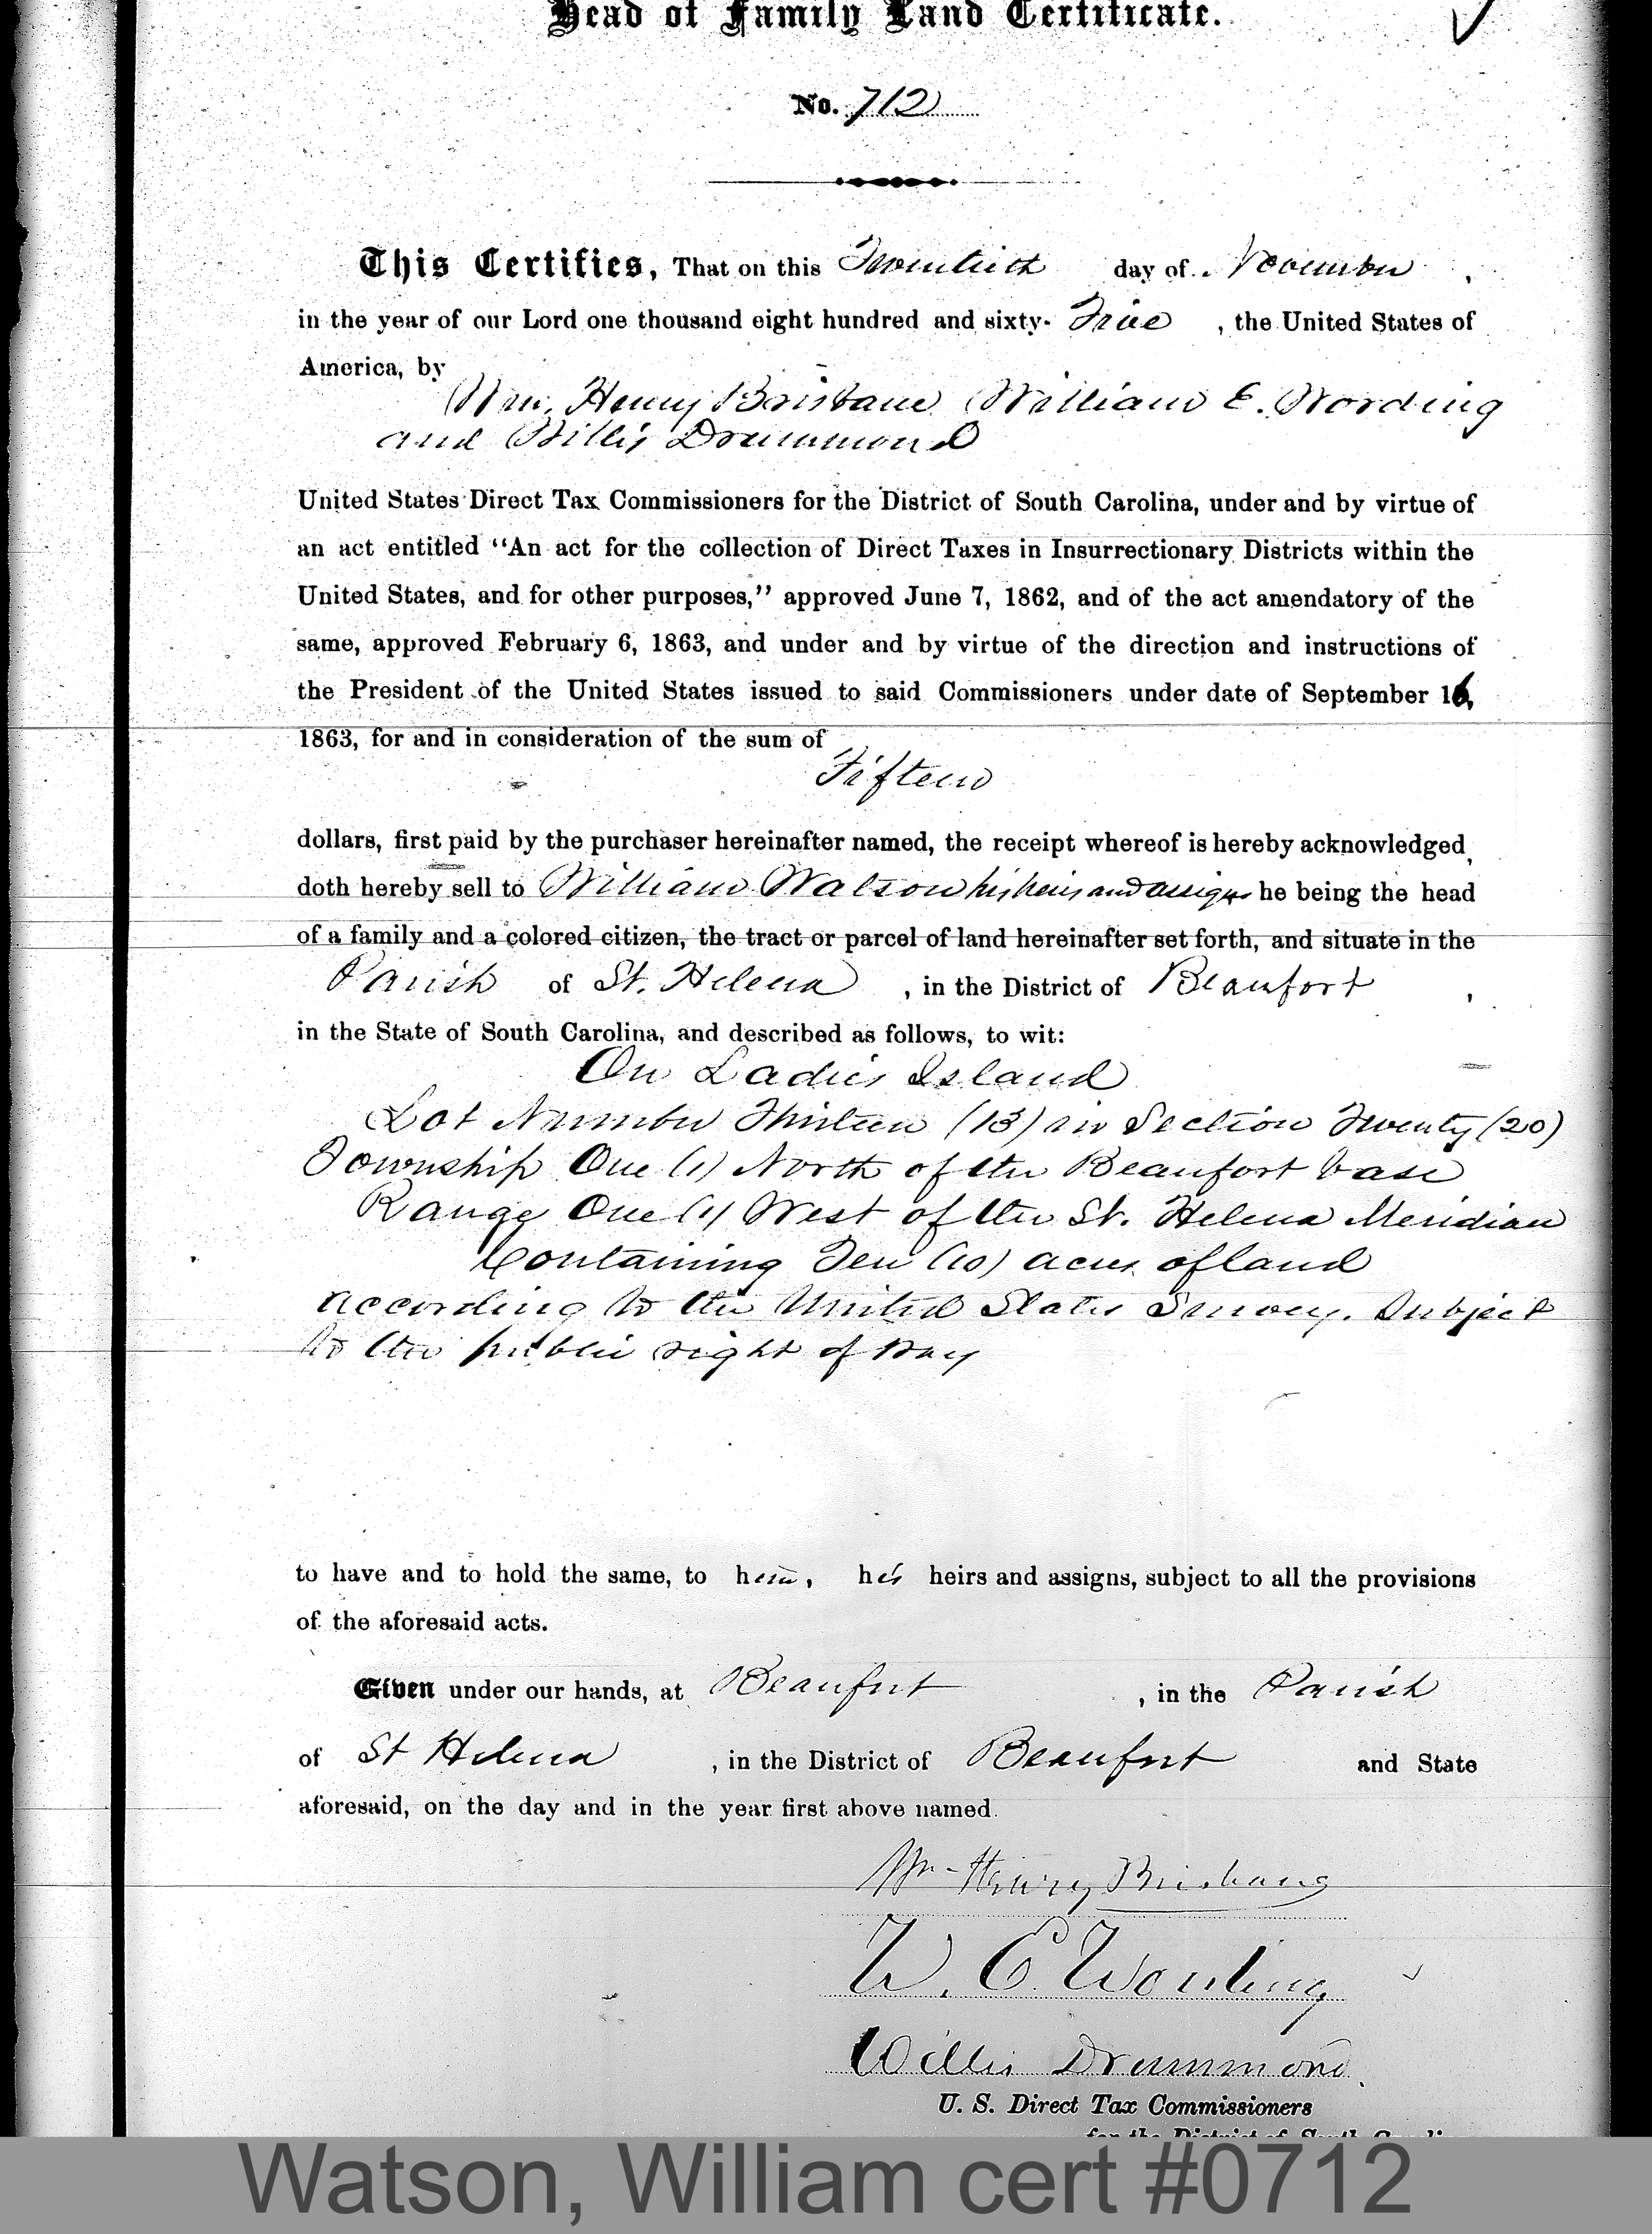 Head of Family Land Certificate.
No. 712
This Certifies, That on this Twentieth day of November,
in the year of our Lord one thousand eight hundred and sixty-Five, the United States of
America, by
Wm. Henry Brisbane William E. Wording
and Willis Drummond
United States Direct Tax Commissioners for the District of South Carolina, under and by virtue of
an act entitled "An act for the collection of Direct Taxes in Insurrectionary Districts within the
United States, and for other purposes," approved June 7, 1862, and of the act amendatory of the
same, approved February 6, 1863, and under and by virtue of the direction and instructions of
the President of the United States issued to said Commissioners under date of September 16,
1863, for and in consideration of the sum of
Fifteen
dollars, first paid by the purchaser hereinafter named, the receipt whereof is hereby acknowledged,
doth hereby sell to William Watson his heirs and assigns he being the head
of a family and a colored citizen, the tract or parcel of land hereinafter set forth, and situate in the
Parish of St. Helena, in the District of Beaufort,
in the State of South Carolina, and described as follows, to wit:
On Ladies Island
Lot Number Thirteen (13) in Section Twenty (20)
Township One (1) North of the Beaufort base
Range One (1) West of the St. Helena Meridian
Containing Ten (10) acres of land
according to the United States Survey. Subject
to the public right of way
to have and to hold the same, to him, his heirs and assigns, subject to all the provisions
of the aforesaid acts.
Given under our hands, at Beaufort, in the Parish
of St Helena, in the District of Beaufort and State
aforesaid, on the day and in the year first above named.
Wm Henry Brisbane
W. E. Wording
Willis Drummond
U. S. Direct Tax Commissioners
for the District of South Carolina
Watson, William cert #0712